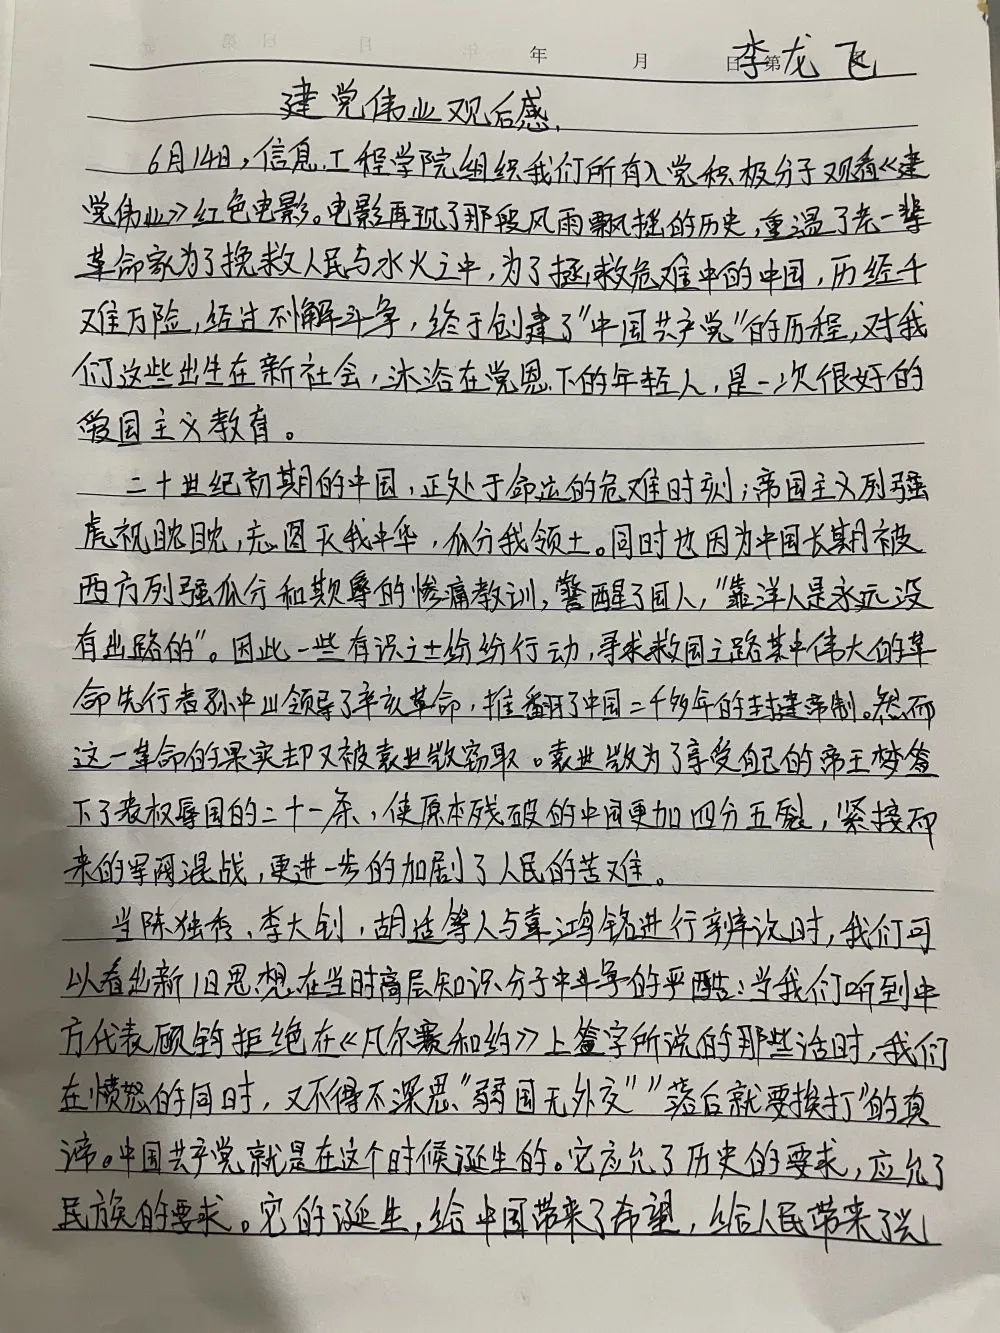 年 月 日 第 页
李龙飞
建党伟业观后感.
6月14日，信息工程学院组织我们所有入党积极分子观看《建
党伟业》红色电影。电影再现了那段风雨飘摇的历史，重温了老一辈
革命家为了挽救人民与水火之中，为了拯救危难中的中国，历经千
难万险，经过不懈斗争，终于创建了“中国共产党”的历程，对我
们这些出生在新社会，沐浴在党恩下的年轻人，是一次很好的
爱国主义教育。
二十世纪初期的中国，正处于命运的危难时刻；帝国主义列强
虎视眈眈，意图灭我中华，瓜分我领土。同时也因为中国长期被
西方列强瓜分和欺辱的惨痛教训，警醒了国人，“靠洋人是永远没
有出路的”。因此一些有识之士纷纷行动，寻求救国之路其中伟大的革
命先行者孙中山领导了辛亥革命，推翻了中国二千多年的封建帝制。然而
这一革命的果实却又被袁世凯窃取。袁世凯为了享受自己的帝王梦签
下了丧权辱国的二十一条，使原本残破的中国更加四分五裂，紧接而
来的军阀混战，更进一步的加剧了人民的苦难。
当陈独秀、李大钊，胡适等人与辜鸿铭进行辨说时，我们可
以看出新旧思想在当时高层知识分子中斗争的严酷；当我们听到中
方代表顾钧拒绝在《凡尔赛和约》上签字所说的那些话时，我们
在愤怒的同时，又不得不深思“弱国无外交”“落后就要挨打”的真
谛。中国共产党就是在这个时候诞生的。它应允了历史的要求，应允了
民族的要求。它的诞生，给中国带来了希望，给人民带来了光